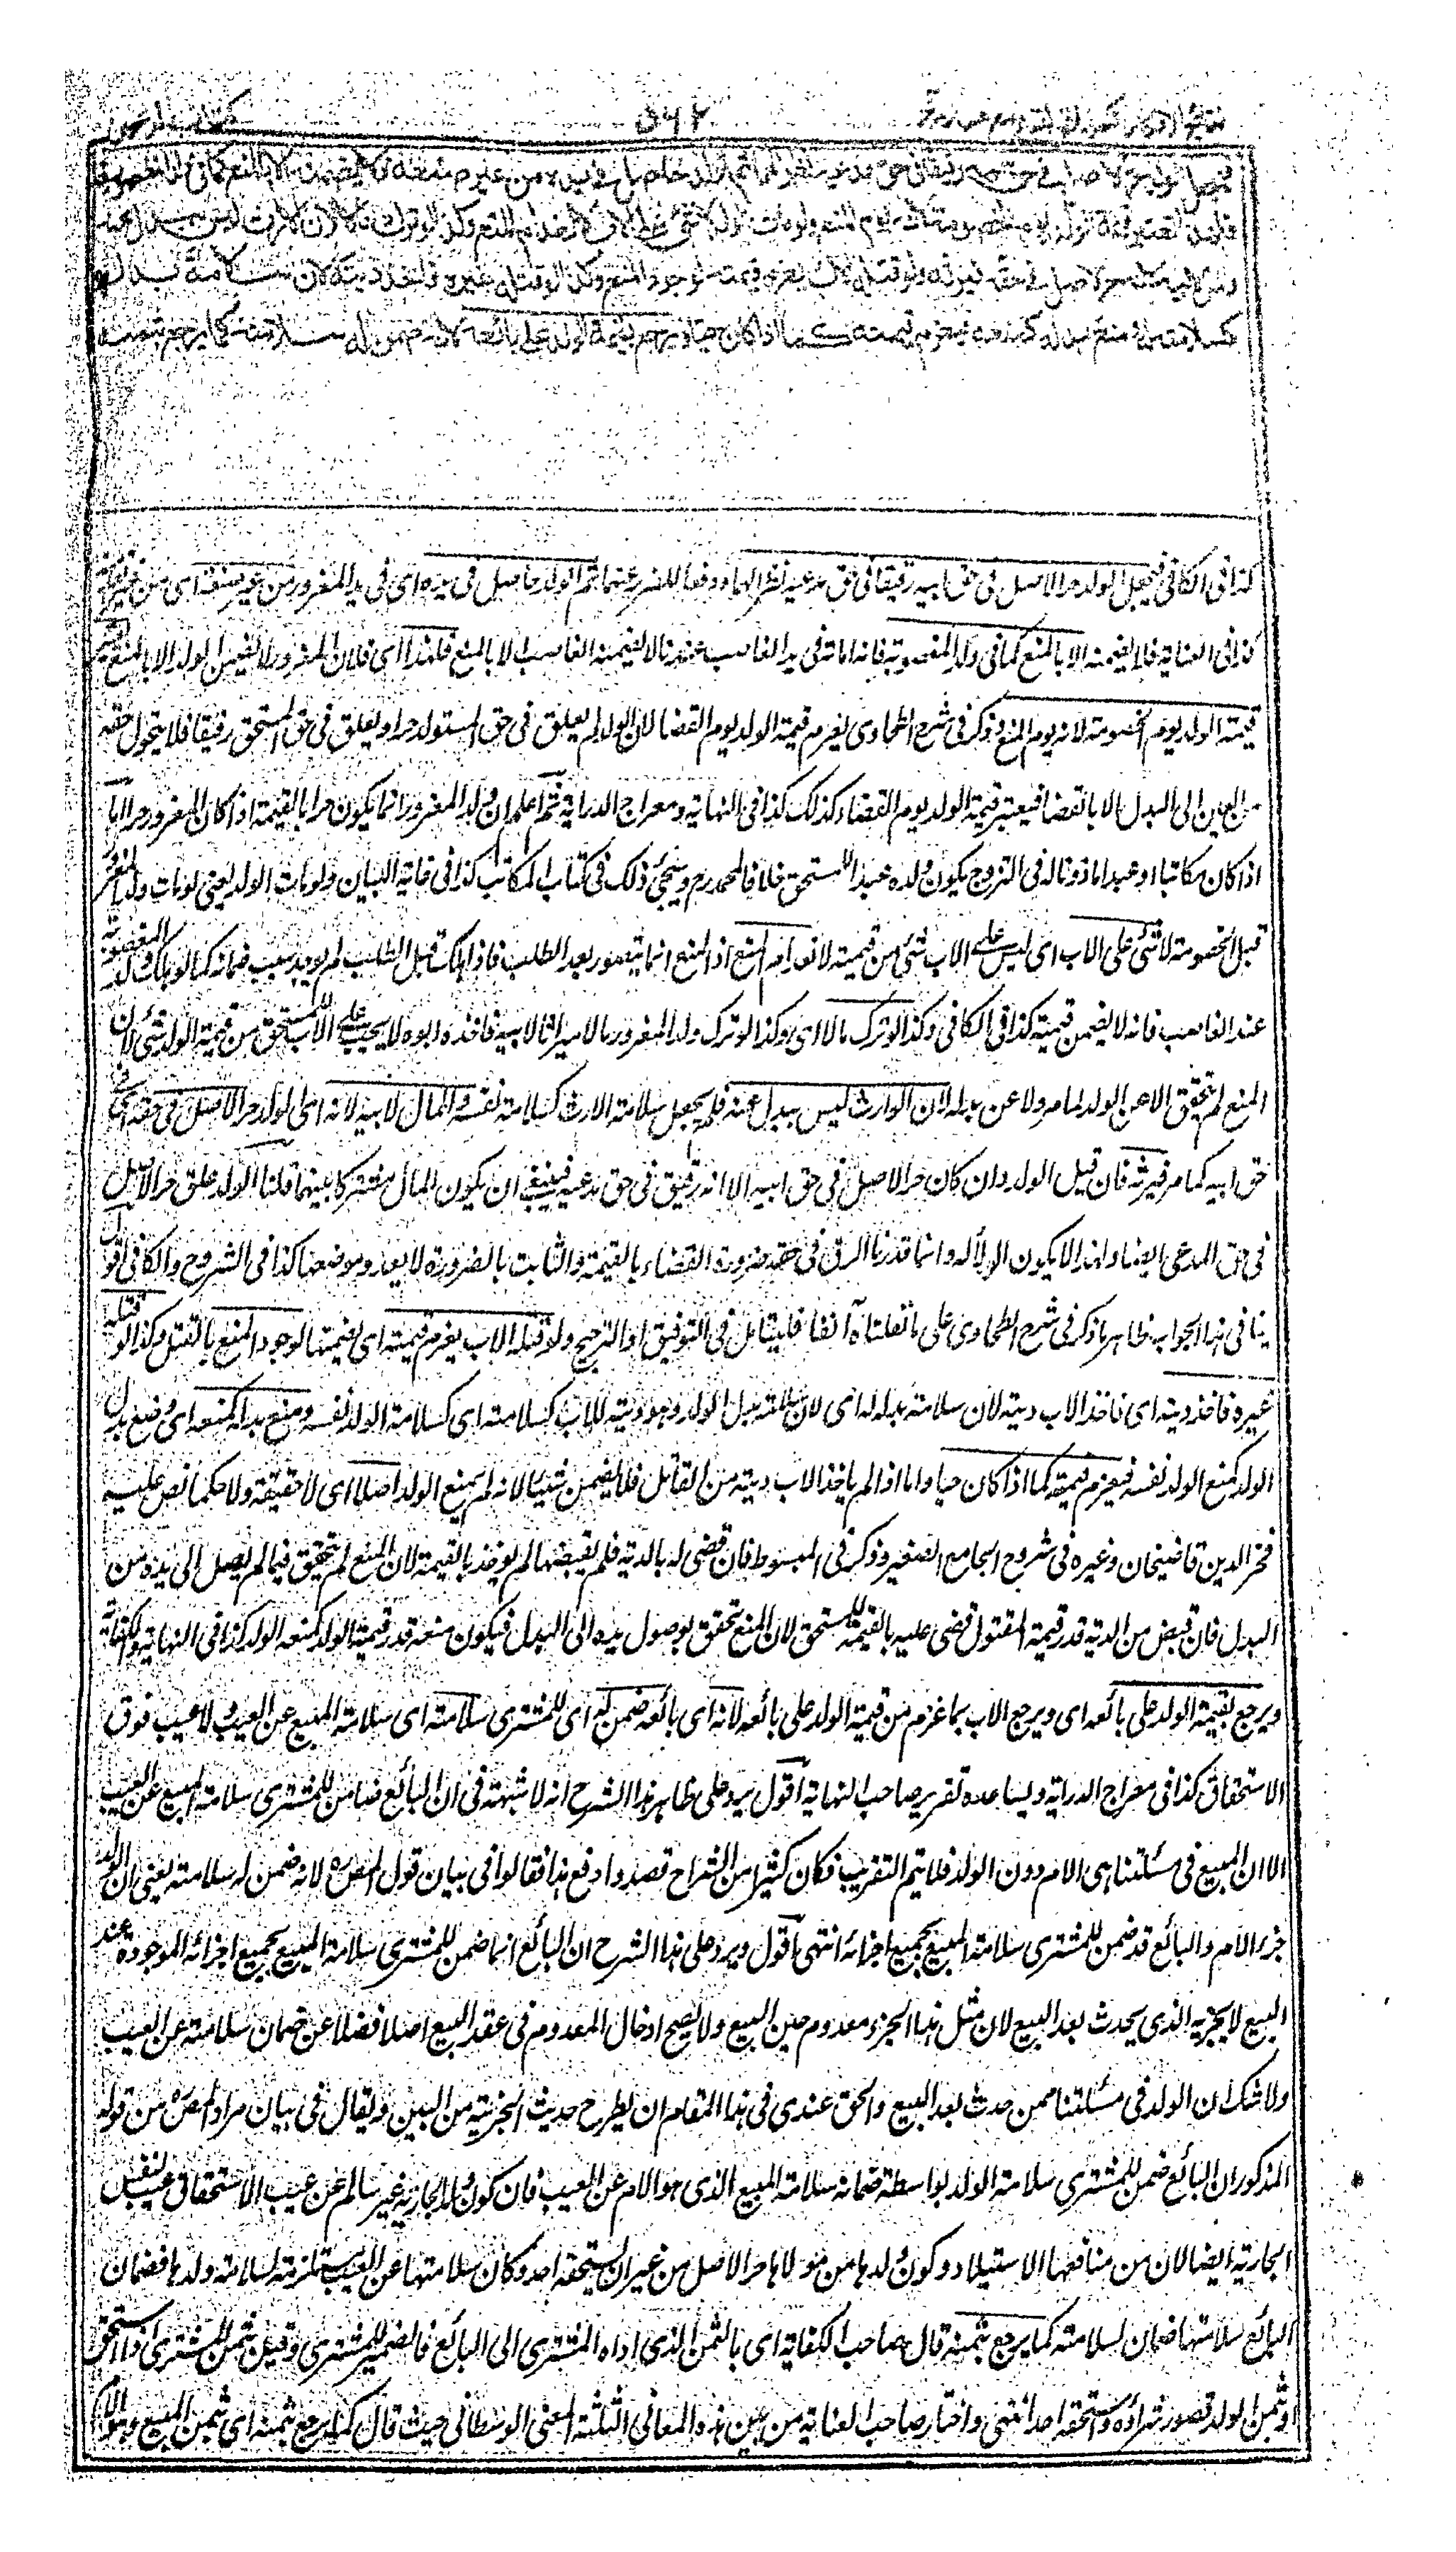 ٥٦٢
فيجعل الولد حر الاصل في حق ابيه رقيقا في حق مدعيه نظرا لهما ثم الولد حاصل في يده من غير صنعه فلا يضمنه الا بالمنع كما في ولد المغصوبة
فلهذا تعتبر قيمة الولد يوم الخصومة لانه يوم المنع ولو مات الولد لا شئ على الاب لانعدام المنع وكذا لو ترك مالا لان الارث ليس ببدل عنه
والمال لابيه لانه حر الاصل في حقه فيرثه ولو قتله الاب يغرم قيمته لوجود المنع وكذا لو قتله غيره فاخذ ديته لان سلامة بدله له
كسلامته ومنع بدله كمنعه فيغرم قيمته كما اذا كان حيا ويرجع بقيمة الولد على بائعه لانه ضمن له سلامته كما يرجع بثمنه
كذا في الكافي فيجعل الولد حر الاصل في حق ابيه رقيقا في حق مدعيه نظرا لهما ودفعا للضرر عنهما ثم الولد حاصل في يده اى في يد المغرور من غير صنعه اى من غير
كذا في العناية فلا يضمنه الا بالمنع كما في ولد المغصوبة فانه امانة في يد الغاصب عندنا لا يضمنه الغاصب الا بالمنع فلهذا اى فلان المغرور لا يضمن الولد الا بالمنع
قيمة الولد يوم الخصومة لانه يوم المنع وذكر في شرح الطحاوى يغرم قيمة الولد يوم القضاء لان الولد لم يعلق في حق المستولد حرا ويعلق في حق المستحق رقيقا فلا يتحول حقه
من العين الى البدل الا بالقضا فيعتبر قيمة الولد يوم القضاء كذلك كذا في النهاية ومعراج الدراية ثم اعلم ان ولد المغرور انما يكون حرا بالقيمة اذا كان المغرور حرا اما
اذا كان مكاتبا او عبدا ماذونا له في التزوج يكون ولده عبدا للمستحق خلافا لمحمد رح وسيجئ ذلك في كتاب المكاتب كذا في غاية البيان ولو مات الولد يعنى لو مات ولد المغرور
قبل الخصومة لا شئ على الاب اى ليس على الاب شئ من قيمته لانعدام المنع اذ المنع انما يتصور بعد الطلب فاذا هلك قبل الطلب لم يوجد سبب ضمانه كما لو هلك ولد المغصوبة
عند الغاصب فانه لا يضمن قيمته كذا في الكافي وكذا لو ترك مالا اى وكذا لو ترك ولد المغرور مالا ميراثا لابيه فاخذه ابوه لا يجب على الاب للمستحق من قيمة الولد شئ لان
المنع لم يتحقق لا عن الولد لما مر ولا عن بدله لان الوارث ليس ببدل عنه فلم يجعل سلامة الارث كسلامة نفسه والمال لابيه لانه اى الولد حر الاصل في حقه اى في
حق ابيه كما مر فيرثه فان قيل الولد وان كان حر الاصل في حق ابيه الا انه رقيق في حق مدعيه فينبغى ان يكون المال مشتركا بينهما قلنا الولد علق حر الاصل
في حق المدعى ايضا ولهذا لا يكون الولاء له وانما قدرنا الرق في حقه ضرورة القضاء بالقيمة والثابت بالضرورة لا يعدو موضعها كذا في الشروح والكافي اقول
ينافى هذا الجواب ظاهر ما ذكر في شرح الطحاوى على ما نقلناه آنفا فليتامل في التوفيق او الترجيح ولو قتله الاب يغرم قيمته اى يضمنها لوجود المنع بالقتل وكذا لو قتله
غيره فاخذ ديته اى فاخذ الاب ديته لان سلامة بدله له اى لان سلامة بدل الولد وهو ديته للاب كسلامته اى كسلامة الولد نفسه ومنع بدله كمنعه اى ومنع بدل
الولد كمنع الولد نفسه فيغرم قيمته كما اذا كان حيا واما اذا لم ياخذ الاب ديته من القاتل فلا يضمن شيئا لانه لم يمنع الولد اصلا اى لا حقيقة ولا حكما نص عليه
فخر الدين قاضيخان وغيره في شروح الجامع الصغير وذكر في المبسوط فان قضى له بالدية فلم يقبضها لم يؤخذ بالقيمة لان المنع لم يتحقق فيما لم يصل الى يده من
البدل فان قبض من الدية قدر قيمة المقتول قضى عليه بالقيمة للمستحق لان المنع تحقق بوصول يده الى البدل فيكون منعه قدر قيمة الولد كمنعه الولد كذا في النهاية والكفاية
ويرجع بقيمة الولد على بائعه اى ويرجع الاب بما غرم من قيمة الولد على بائعه لانه اى بائعه ضمن له اى للمشترى سلامته اى سلامة المبيع عن العيب ولا عيب فوق
الاستحقاق كذا في معراج الدراية ويساعده تقرير صاحب النهاية اقول يرد على ظاهر هذا الشرح انه لا شبهة في ان البائع ضامن للمشترى سلامة المبيع عن العيب
الا ان المبيع في مسئلتنا هى الام دون الولد فلا يتم التقريب فكان كثيرا من الشراح قصدوا دفع هذا فقالوا في بيان قول المصنف لانه ضمن له سلامته يعنى ان الولد
جزء الام والبائع قد ضمن للمشترى سلامة المبيع بجميع اجزائه انتهى اقول ويرد على هذا الشرح ان البائع انما ضمن للمشترى سلامة المبيع بجميع اجزائه الموجودة عند
البيع لا بجزئه الذى يحدث بعد البيع لان مثل هذا الجزء معدوم حين البيع ولا يصح ادخال المعدوم في عقد البيع اصلا فضلا عن ضمان سلامته عن العيب
ولا شك ان الولد في مسئلتنا ممن حدث بعد البيع والحق عندى في هذا المقام ان يطرح حديث الجزئية من البين ويقال في بيان مراد المصنف من قوله
المذكور ان البائع ضمن للمشترى سلامة الولد بواسطة ضمانه سلامة المبيع الذى هو الام عن العيب فان كون ولد الجارية غير سالم عن عيب الاستحقاق عيب لنفس
الجارية ايضا لان من منافعها الاستيلاد وكون ولدها من مولاها حر الاصل من غير ان يستحقه احد وكان سلامتها عن العيب مستلزمة لسلامة ولدها فضمان
البائع سلامتها ضمان لسلامته كما يرجع بثمنه قال صاحب الكفاية اى بالثمن الذى اداه المشترى الى البائع فالضمير للمشترى وقيل بثمن المشترى اذا استحق
او ثمن الولد تصور شراؤه واستحقه احد انتهى واختار صاحب العناية من بين هذه المعانى الثلثة المعنى الوسطانى حيث قال كما يرجع بثمنه اى بثمن المبيع وهو الام